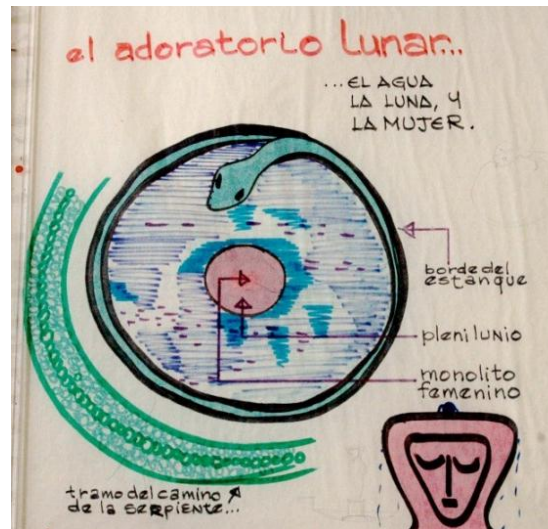 el adoratorio Lunar...
...EL AGUA
LA LUNA, Y
LA MUJER.
borde del
estanque
plenilunio
monolito
femenino
tramo del camino
de la SERPIENTE...